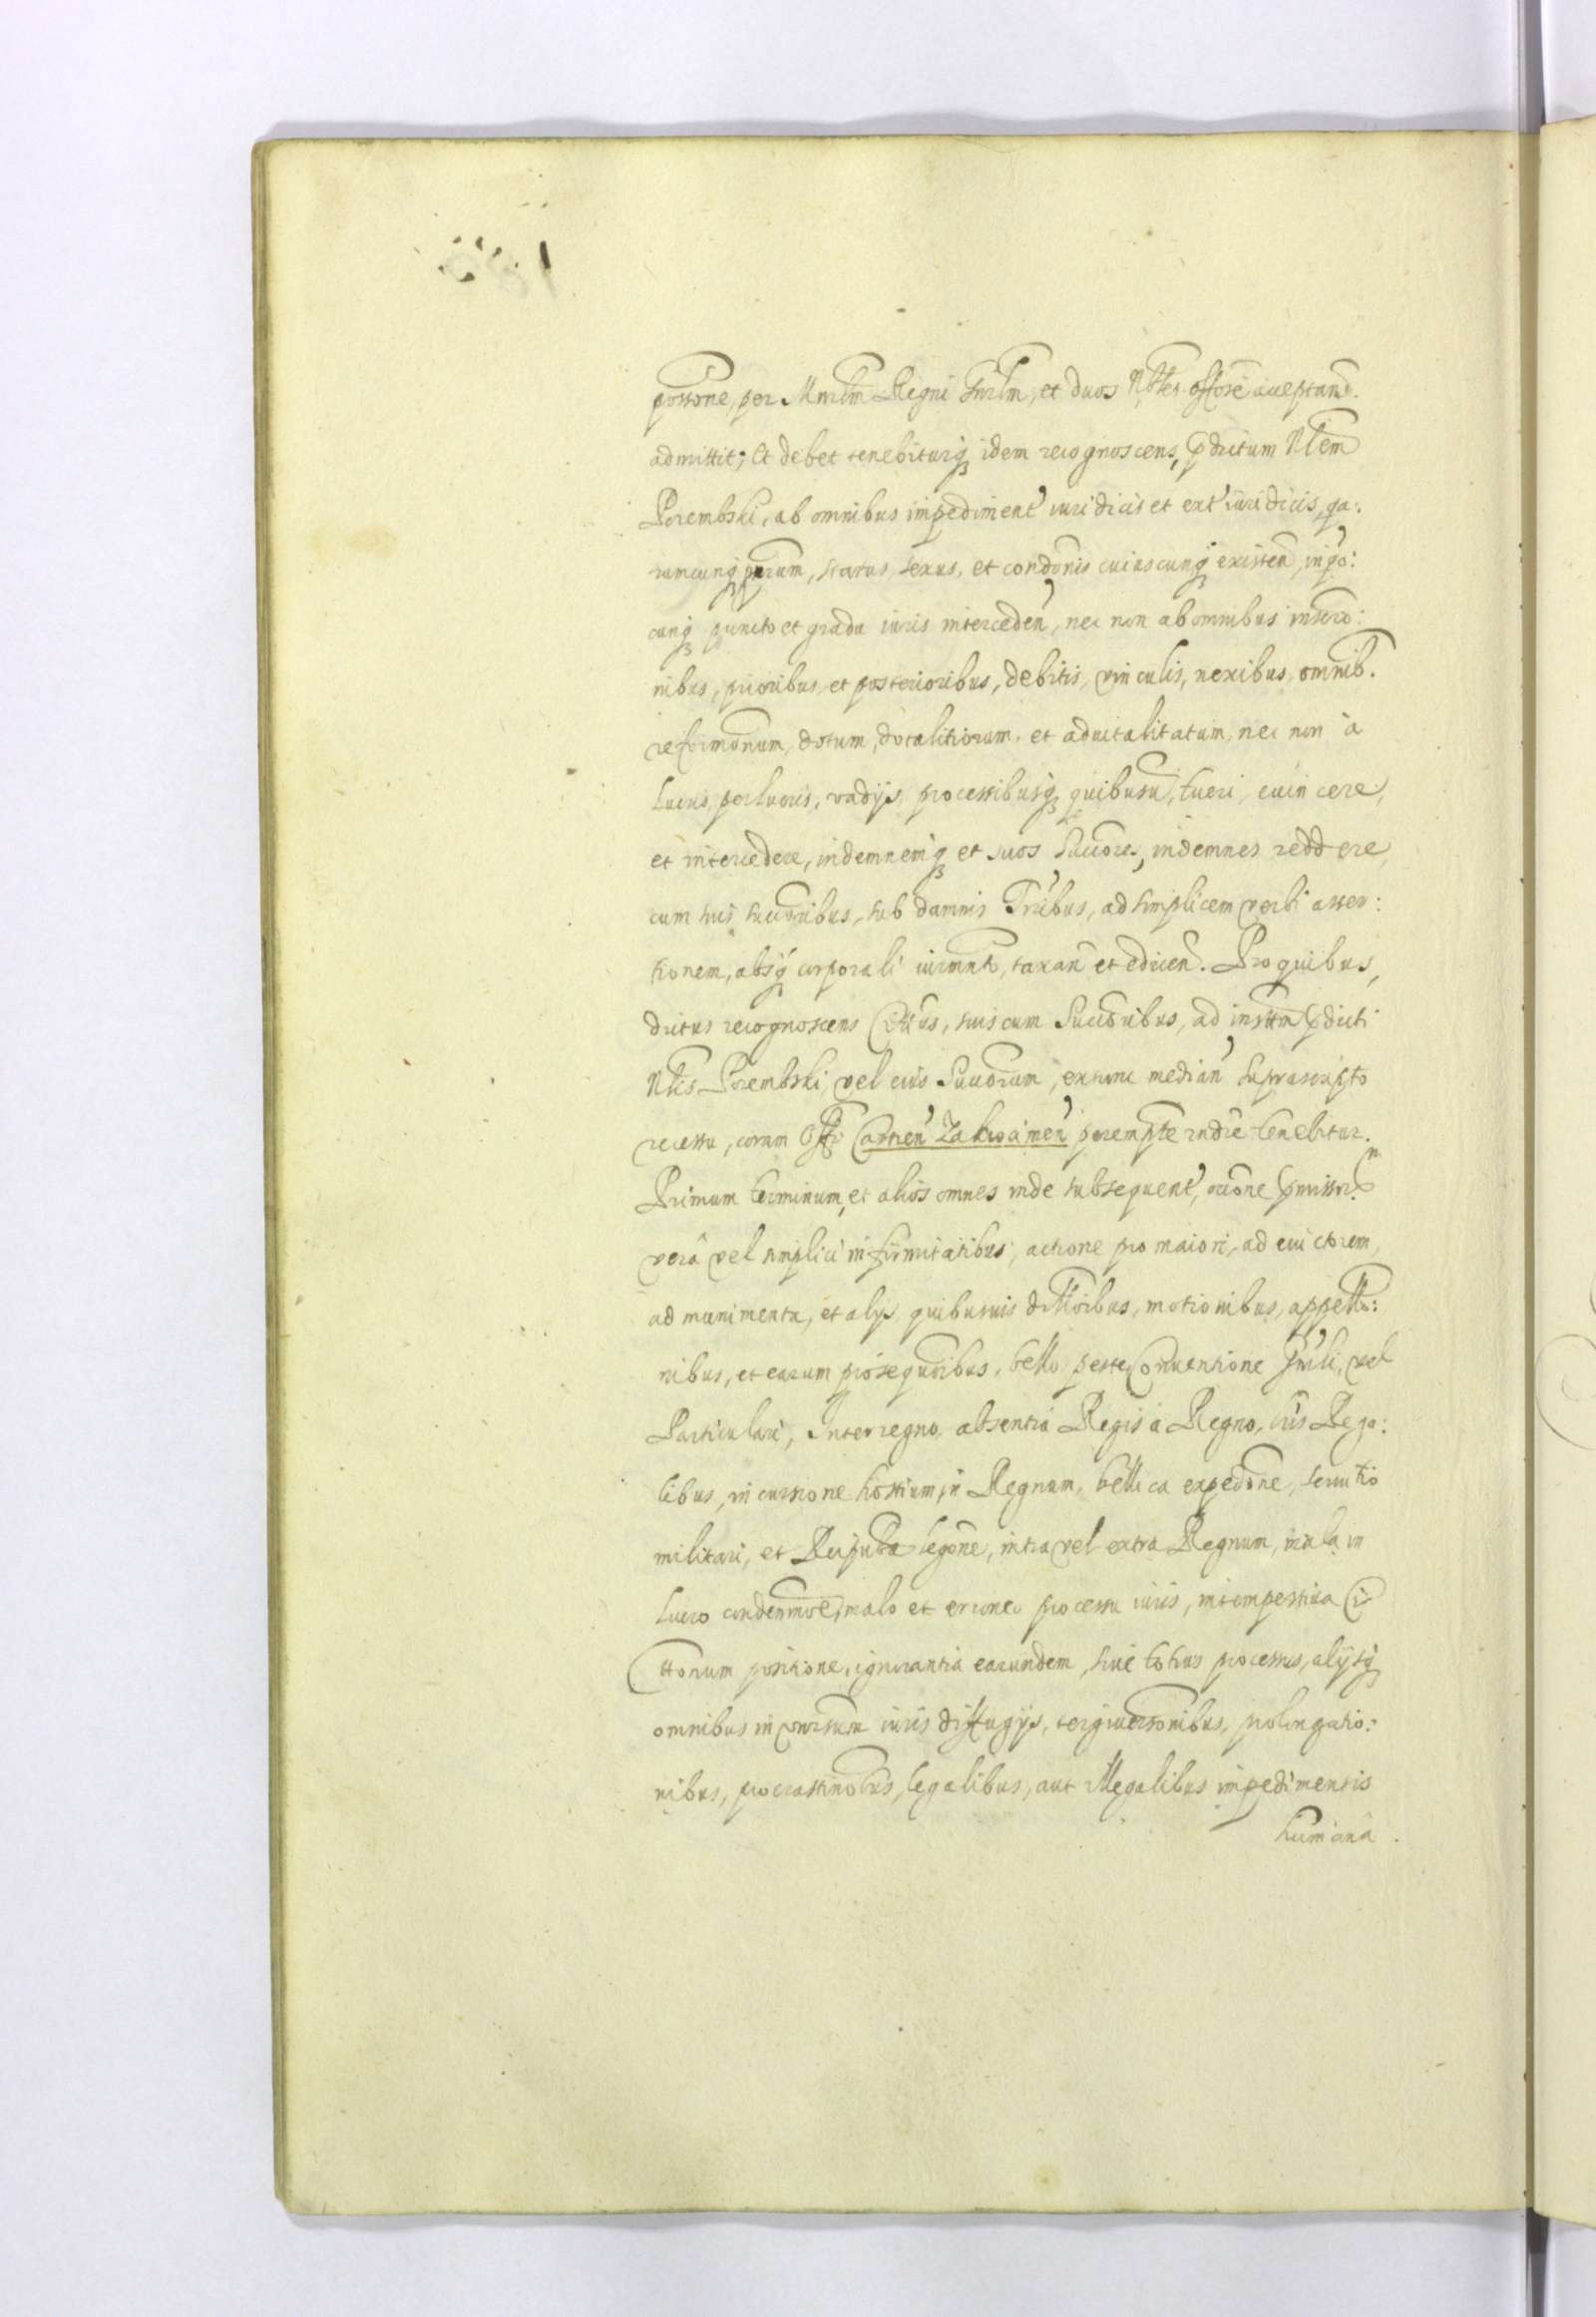 possone, per Mnrlm Regni Gnrlm, et duos Nbles offiose acceptan.
admittit; Et debet tenebiturq idem recognoscens, pdictum Nlem
Porembski, ab omnibus impediment iuridicis et ext iuridicis, qa:
rumcunq prarum, status, sexus, et condonis cuiuscunq existen, in po:
cunq puncto et gradu iuris interceden, nec non ab omnibus inscro:
nibus, prioribus et posterioribus, debitis, vinculis, nexibus omnib.
reformonum, dotum, dotalitiorum et aduitalitatum, nec non à
lucris, perlucris, vadijs, processibusq quibusu, tueri, euincere,
et intercedere, indemnemq et suos succores, indemnes reddere,
cum suis succoribus, sub damnis Tribus, ad simplicem verbi asser:
tionem, absq corporali iurmnto, taxan et edicen. Pro quibus,
dictus recognoscens Cittus, suis cum Succoribus, ad instm pdicti
Nlis Porembski, vel eius Succorum, extunc median suprascripto
recessu, coram Offo Castren Zakroamen perempte indie tenebitur.
Primum terminum, et alios omnes inde subsequent, occone pmissor
verâ vel simplici infirmitatibus, actione pro maiori, ad euictorem,
ad munimenta, et alys quibusuis dilloibus, motionibus, appello:
nibus, et earum prosequoibus, bello peste, Conuentione Gnrli, vel
Particulari, Interregno, absentiâ Regis à Regno, eius Lega:
tibus, incursione hostium in Regnum, bellica expedone, seruitio
militari, et Reipubcæ legone, intra vel extra Regnum, mala in
lucro condemnoe, malo et erroneo processu iuris, intempestiua Ci
ttonum positione, ignorantia earundem, siue totius processus, alijsq
omnibus in vnrsum iuris diffugijs, tergiuersonibus, prolongatio:
nibus, procrastinobus, legalibus, aut illegalibus impedimentis
humana